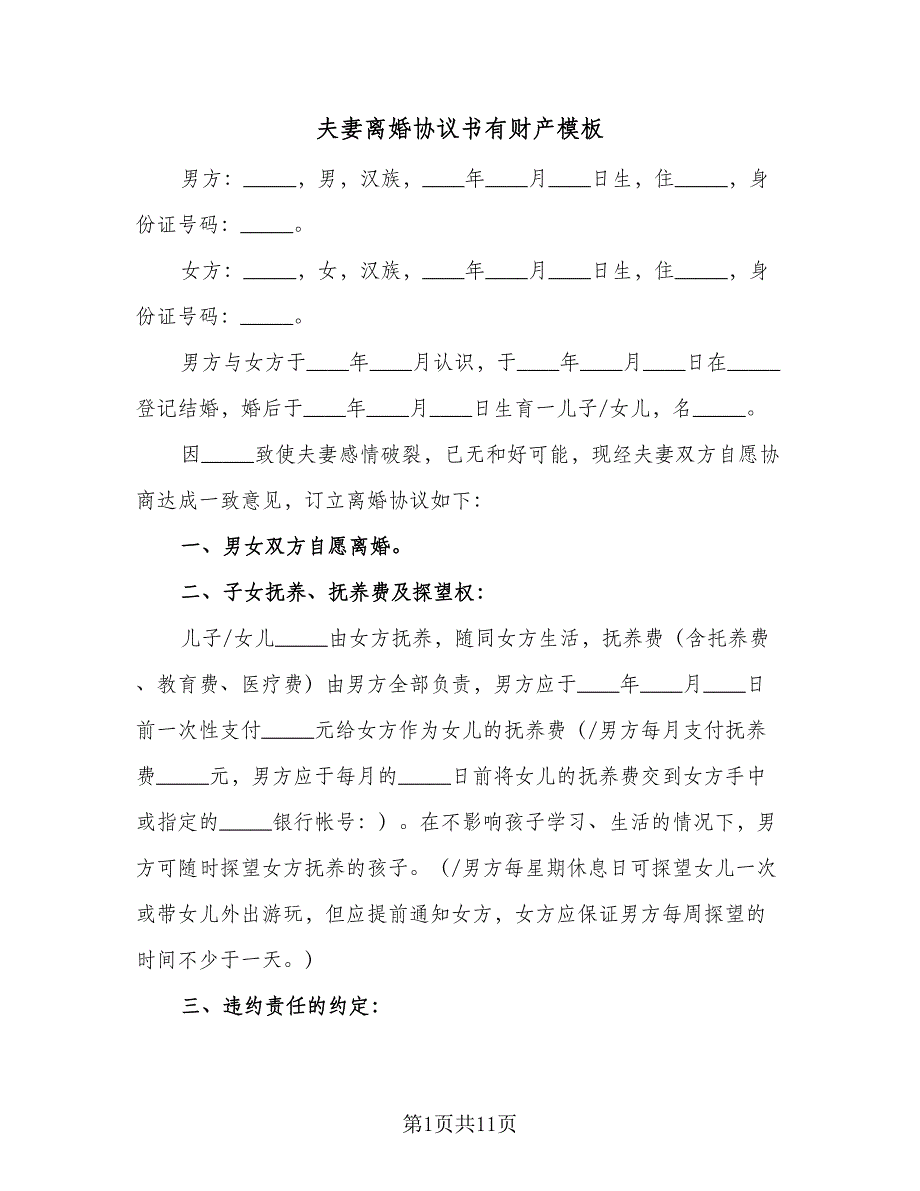 夫妻离婚协议书有财产模板
男方：_____，男，汉族，____年____月____日生，住_____，身
份证号码：_____。
女方：_____，女，汉族，____年____月____日生，住_____，身
份证号码：_____。
男方与女方于____年____月认识，于____年____月____日在_____
登记结婚，婚后于____年____月____日生育一儿子/女儿，名_____。
因_____致使夫妻感情破裂，已无和好可能，现经夫妻双方自愿协
商达成一致意见，订立离婚协议如下：
一、男女双方自愿离婚。
二、子女抚养、抚养费及探望权：
儿子/女儿_____由女方抚养，随同女方生活，抚养费（含托养费
、教育费、医疗费）由男方全部负责，男方应于____年____月____日
前一次性支付_____元给女方作为女儿的抚养费（/男方每月支付抚养
费_____元，男方应于每月的_____日前将女儿的抚养费交到女方手中
或指定的_____银行帐号：）。在不影响孩子学习、生活的情况下，男
方可随时探望女方抚养的孩子。（/男方每星期休息日可探望女儿一次
或带女儿外出游玩，但应提前通知女方，女方应保证男方每周探望的
时间不少于一天。）
三、违约责任的约定：
第1页共11页